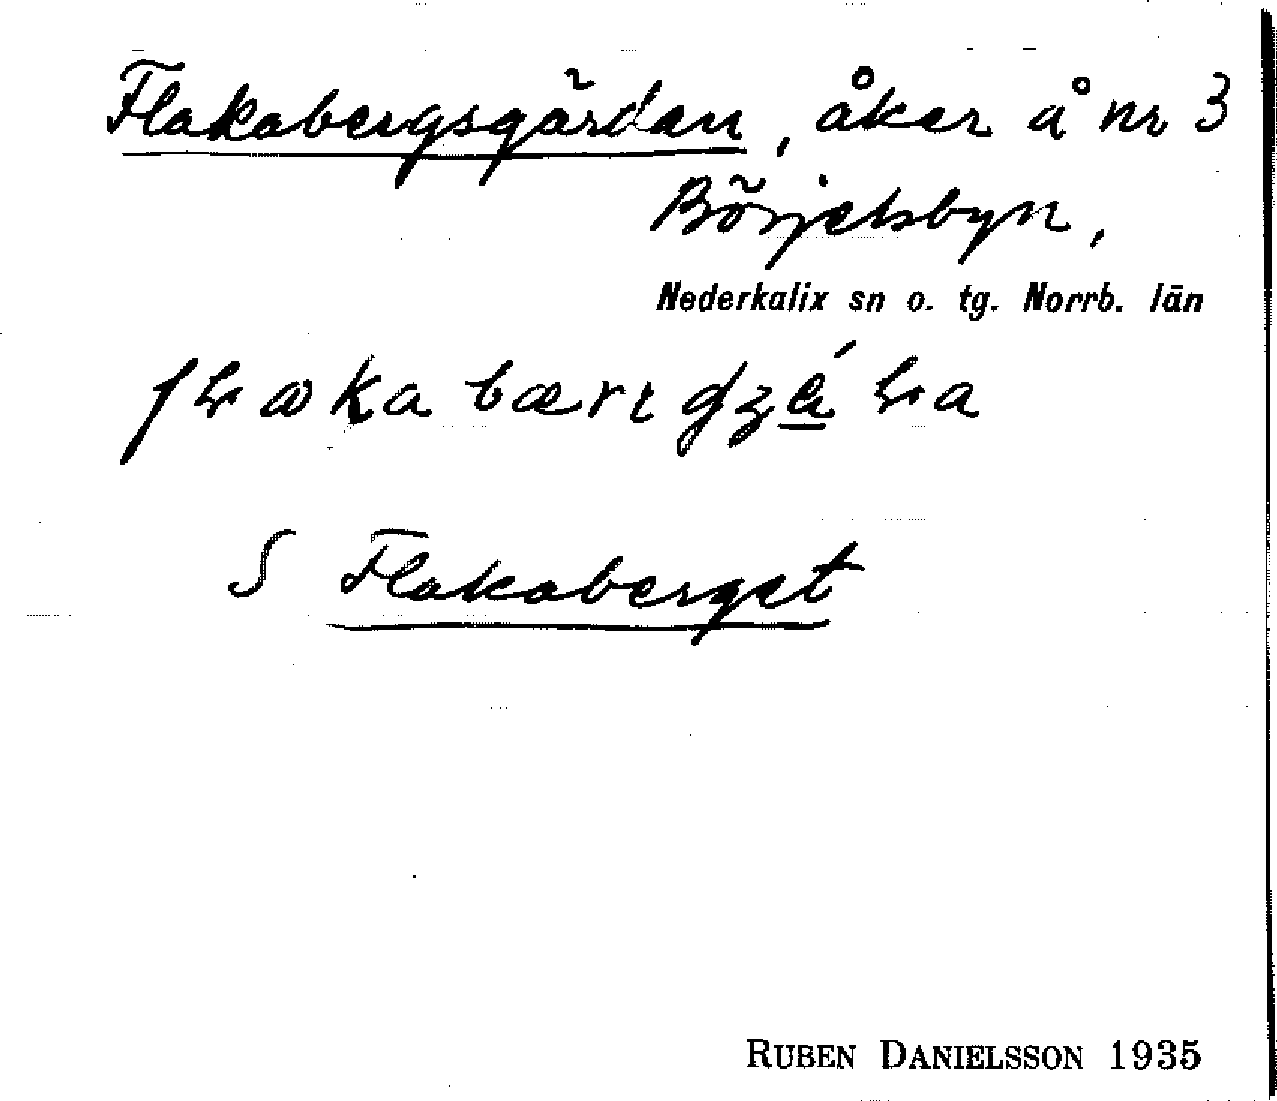 Flakabergsgärdan, åker å nr 3
Börjelsbyn,
Nederkalix sn o. tg. Norrb. län
S Flakaberget
RUBEN DANIELSSON 1935